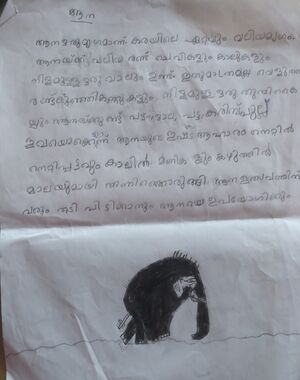 ആന
ആന ഒരു മൃഗമാണ് കരയിലെ ഏറ്റവും വലിയമൃഗം
ആനയ്ക്ക് വലിയ രണ്ട് ചെവികളും കാലുകളും
നീളമുള്ള ഒരു വാലും ഉണ്ട് ഇതുമാത്രമല്ല വെളുത്ത
രണ്ട് കളും, നീളമുള്ള ഒരു തുമ്പി
യും ആനയ്ക്കുണ്ട് പട്ട, കരിമ്പ്, പുല്ല്
ഇവയൊക്കെയാണ് ആനയുടെ ഇഷ്ട ആഹാരം നെറ്റിൽ
നെറ്റിപ്പട്ടവും കാലിൽ മണികളും കഴുത്തിൽ
മാലയുമായി അണിഞ്ഞൊരുങ്ങി ആന ഉത്സവത്തിന്
വരും തടി പിടിക്കാനും ആനയെ ഉപയോഗിക്കും